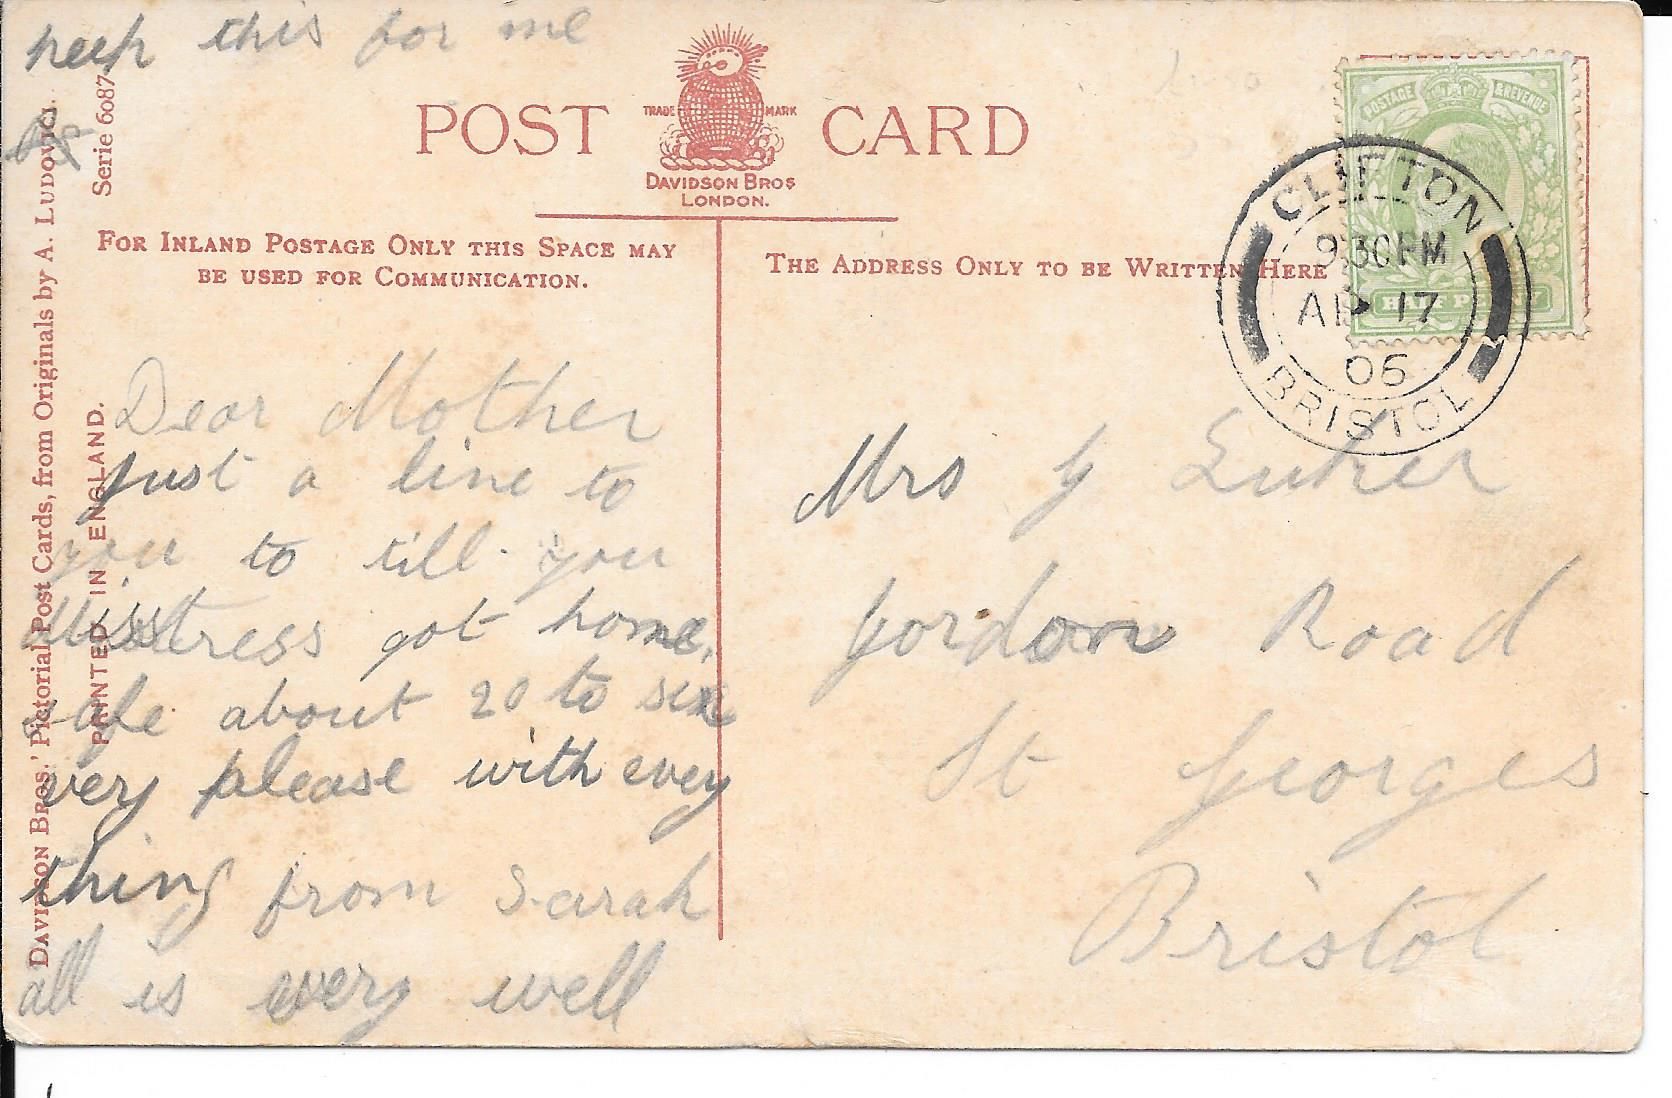 keep this for me
POST CARD
TRADE MARK
DAVIDSON BROS
LONDON.
FOR INLAND POSTAGE ONLY THIS SPACE MAY
BE USED FOR COMMUNICATION.
THE ADDRESS ONLY TO BE WRITTEN HERE
POSTAGE & REVENUE
HALF PENNY
CLIFTON
9 30 PM
AP 17
06
BRISTOL
DAVIDSON BROS.' Pictorial Post Cards, from Originals by A. LUDOVICI.
Serie 6087
PRINTED IN ENGLAND.
Dear Mother
just a line to
you to till you
Misstress got home
safe about 20 to six
very please with every
thing from Sarah
all is very well
Mrs G Luker
Gordon Road
St Georges
Bristol